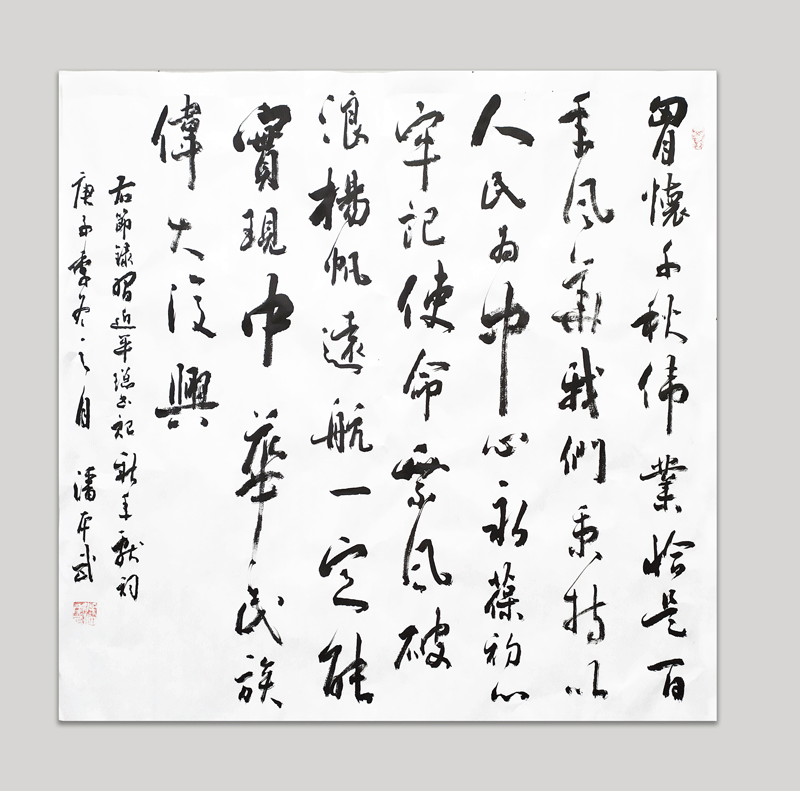 胷懷千秋伟業恰是百
年風華我們秉持以
人民為中心永葆初心
牢記使命乘風破
浪楊帆遠航一定能
實現中華民族
偉大復興
右節錄習近平總書記新年獻詞
庚子季冬之月 潘武